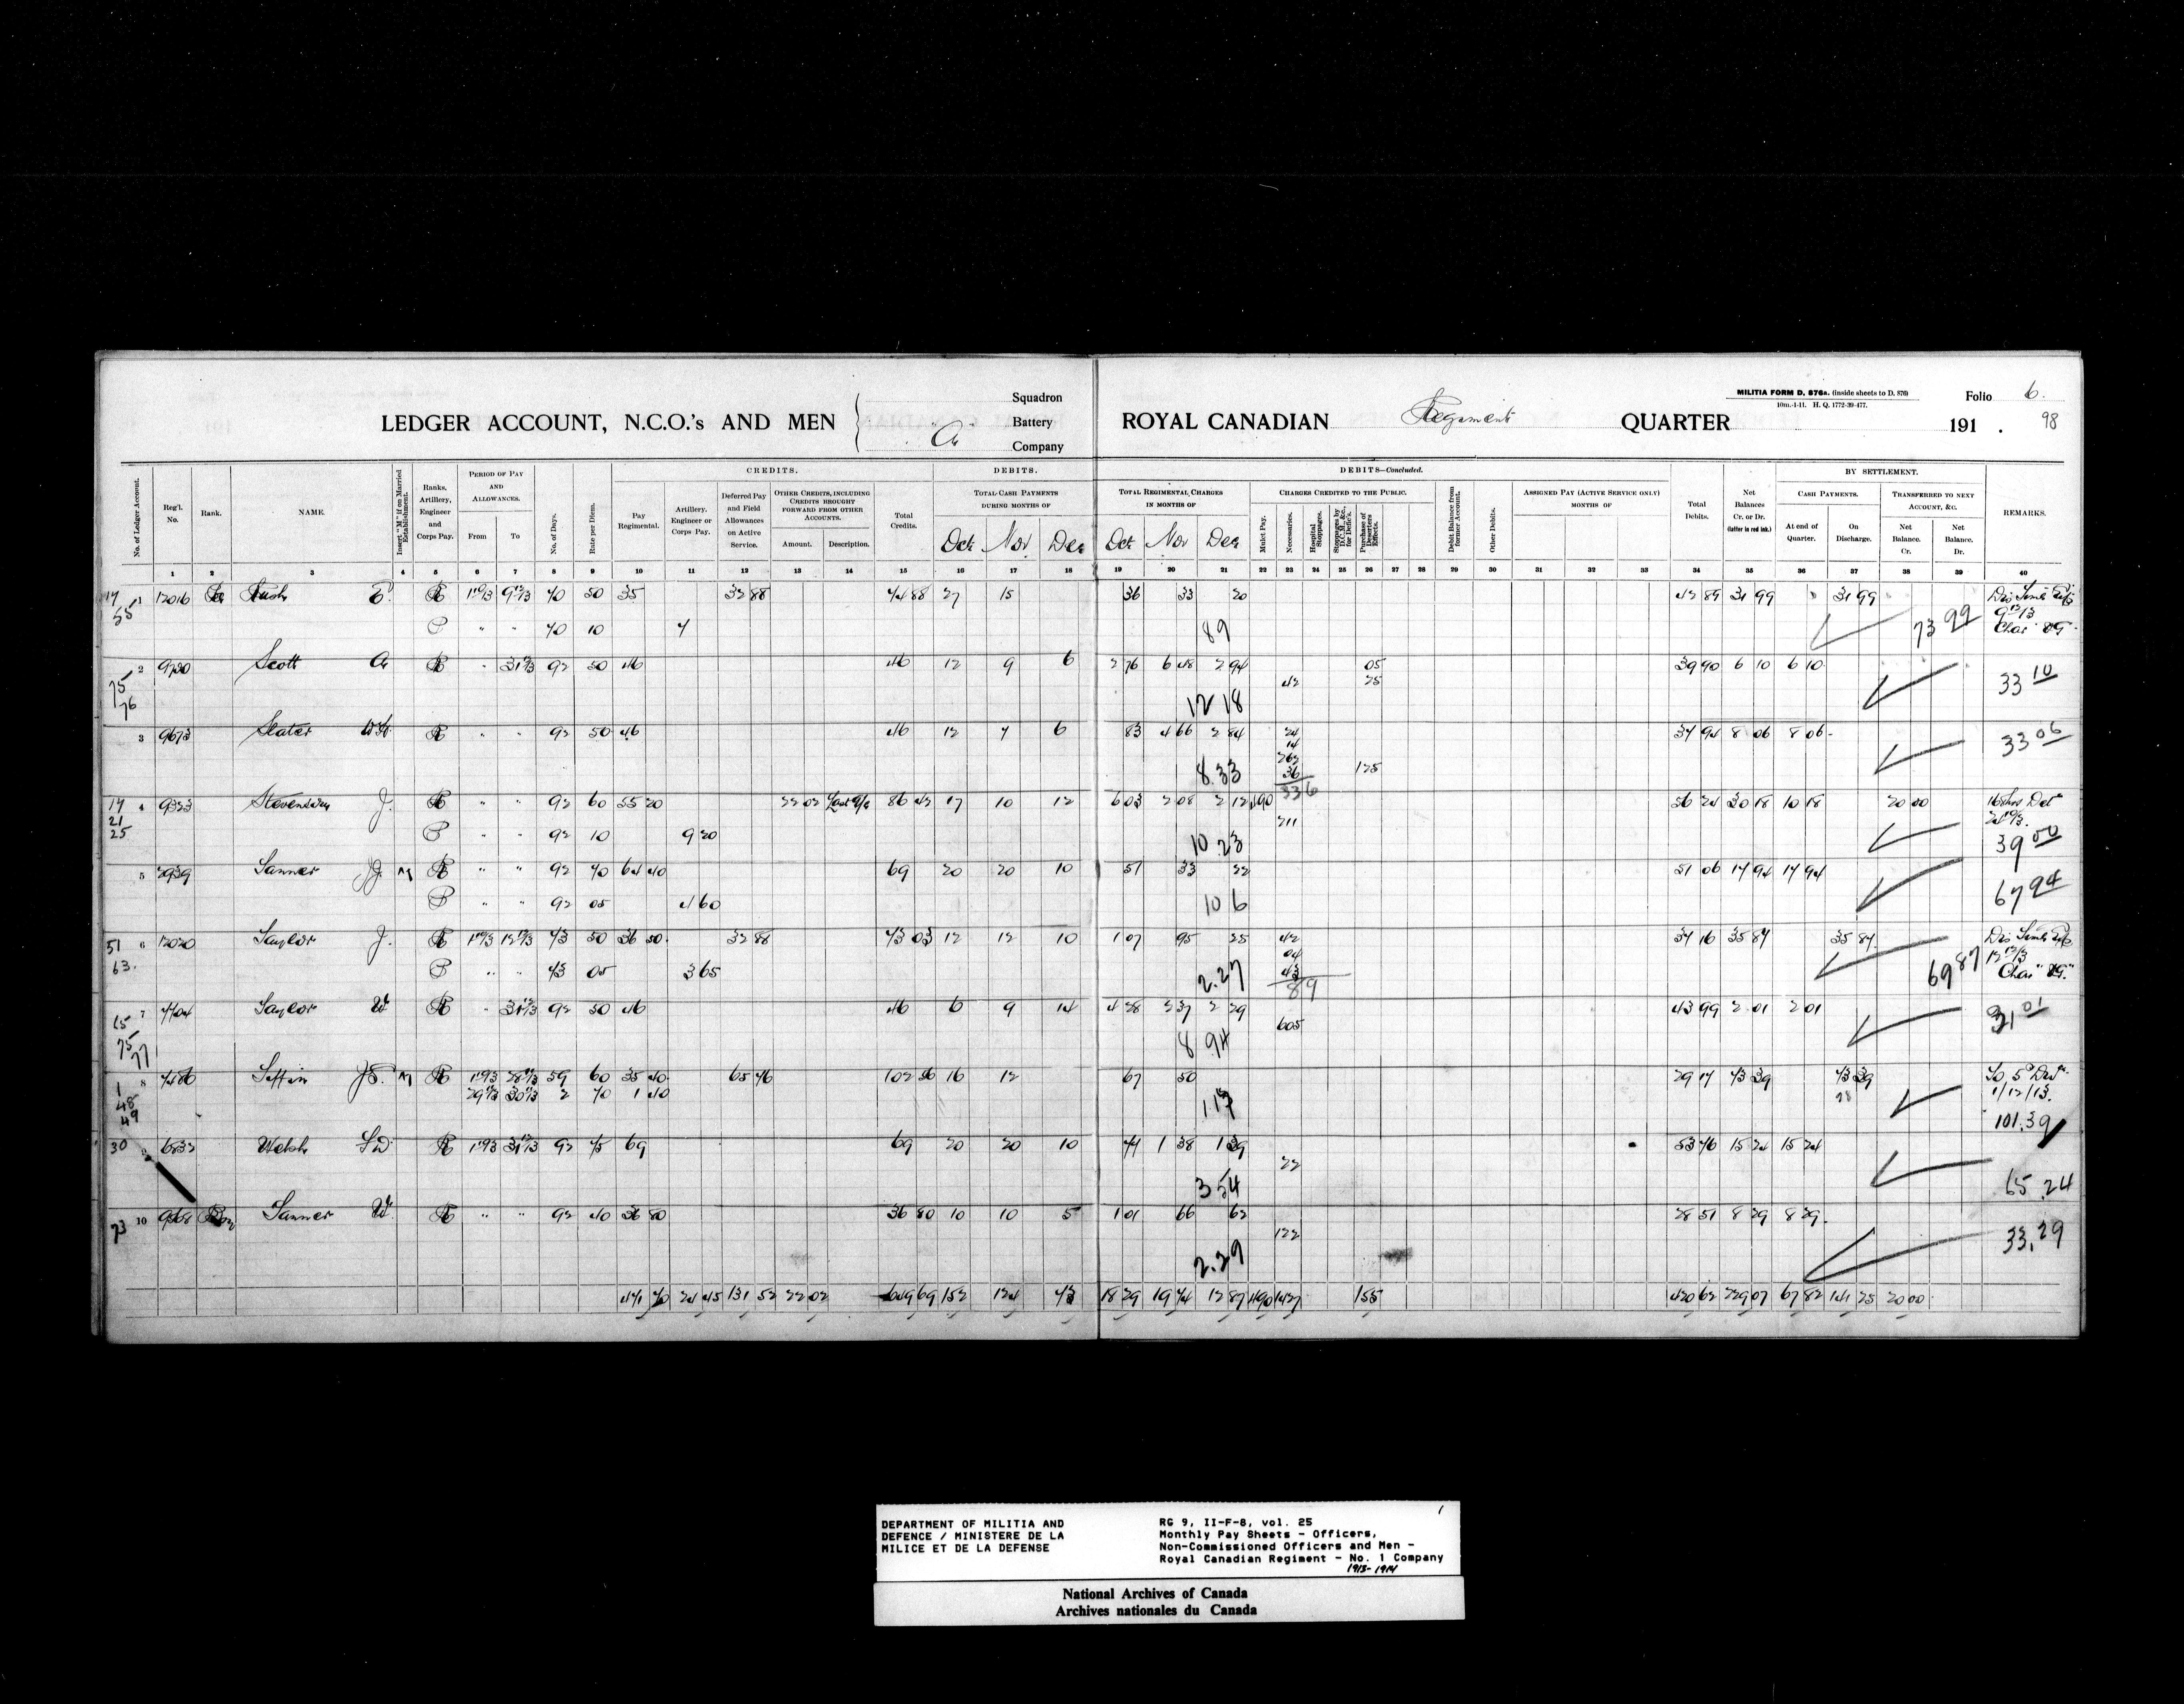 MILITIA FORM D. 876a. (inside sheets to D. 876)
10m.-1-11. H. Q. 1772-39-477.
Folio 6.
98
Squadron
LEDGER ACCOUNT, N.C.O.'s AND MEN "A" Battery
Company
ROYAL CANADIAN Regiment QUARTER 191 .
CREDITS. DEBITS. DEBITS—Concluded. BY SETTLEMENT.
No. of Ledger Account. Reg'l. No. Rank. NAME. Insert "M" if on Married Establishment. Ranks, Artillery, Engineer and Corps Pay. PERIOD OF PAY AND ALLOWANCES. From To No. of Days. Rate per Diem. Pay Regimental. Artillery, Engineer or Corps Pay. Deferred Pay and Field Allowances on Active Service. OTHER CREDITS, INCLUDING CREDITS BROUGHT FORWARD FROM OTHER ACCOUNTS. Amount. Description. Total Credits. TOTAL CASH PAYMENTS DURING MONTHS OF Oct Nov Dec
TOTAL REGIMENTAL CHARGES IN MONTHS OF Oct Nov Dec CHARGES CREDITED TO THE PUBLIC. Mulct Pay. Necessaries. Hospital Stoppages. Stoppages by D.C.M., &c., for Deficits. Purchase of Deserters Effects. Debit Balance from former Account. Other Debits. ASSIGNED PAY (ACTIVE SERVICE ONLY) MONTHS OF Total Debits. Net Balances Cr. or Dr. (latter in red ink.) CASH PAYMENTS. At end of Quarter. On Discharge. TRANSFERRED TO NEXT ACCOUNT, &C. Net Balance. Cr. Net Balance. Dr. REMARKS.
1 2 3 4 5 6 7 8 9 10 11 12 13 14 15 16 17 18 19 20 21 22 23 24 25 26 27 28 29 30 31 32 33 34 35 36 37 38 39 40
1 12016 R 70 50 35 32 88 74 88 27 15 36 33 20 42 89 31 99 31 99
P " " 70 10 7 89 73 99
2 9720 Scott A R " 92 50 46 46 12 9 6 2 76 6 48 2 94 05 39 90 6 10 6 10
42 25
12 18 33 10
3 9673 Slater W.H. R " " 92 50 46 46 12 7 6 83 4 66 2 84 24 37 94 8 06 8 06
14
262
8.33 36 125 33 06
336
4 9323 Stevenson J. R " " 92 60 55 20 22 02 86 42 17 10 12 6 03 2 08 2 12 490 56 24 30 18 10 18 20 00
P " " 92 10 9 20 211
10 23 39 00
5 Tanner J.J. M R " " 92 70 64 40 69 20 20 10 51 33 22 51 06 17 94 17 94
P " " 92 05 4 60 1 06 67 94
6 12020 Taylor J. R 73 50 36 50 32 88 73 03 12 12 10 1 07 95 25 42 37 16 35 87 35 87
04
P " " 73 05 3 65 2.27 43 69 87
89
7 Taylor W R " 92 50 46 46 6 9 14 4 28 2 37 2 29 43 99 2 01 2 01
605
8 94 31 01
8 M R 59 60 35 40 65 76 102 56 16 12 67 50 29 17 73 39 73 39
2 70 1 40
1.17 1/12/13.
101.39
9 Welsh R 92 75 69 69 20 20 10 77 1 38 1 39 53 76 15 24 15 24
22
3 54 65.24
10 9368 Tanner W. R " " 92 40 36 80 36 80 10 10 5 1 01 66 62 28 51 8 29 8 29
122
2.29 33.29
471 70 24 45 131 52 22 02 649 69 152 124 73 18 29 19 74 12 87 490 1427 155 420 62 229 07 67 82 141 25 20 00
DEPARTMENT OF MILITIA AND
DEFENCE / MINISTERE DE LA
MILICE ET DE LA DEFENSE
1
RG 9, II-F-8, vol. 25
Monthly Pay Sheets - Officers,
Non-Commissioned Officers and Men -
Royal Canadian Regiment - No. 1 Company
1913-1914
National Archives of Canada
Archives nationales du Canada